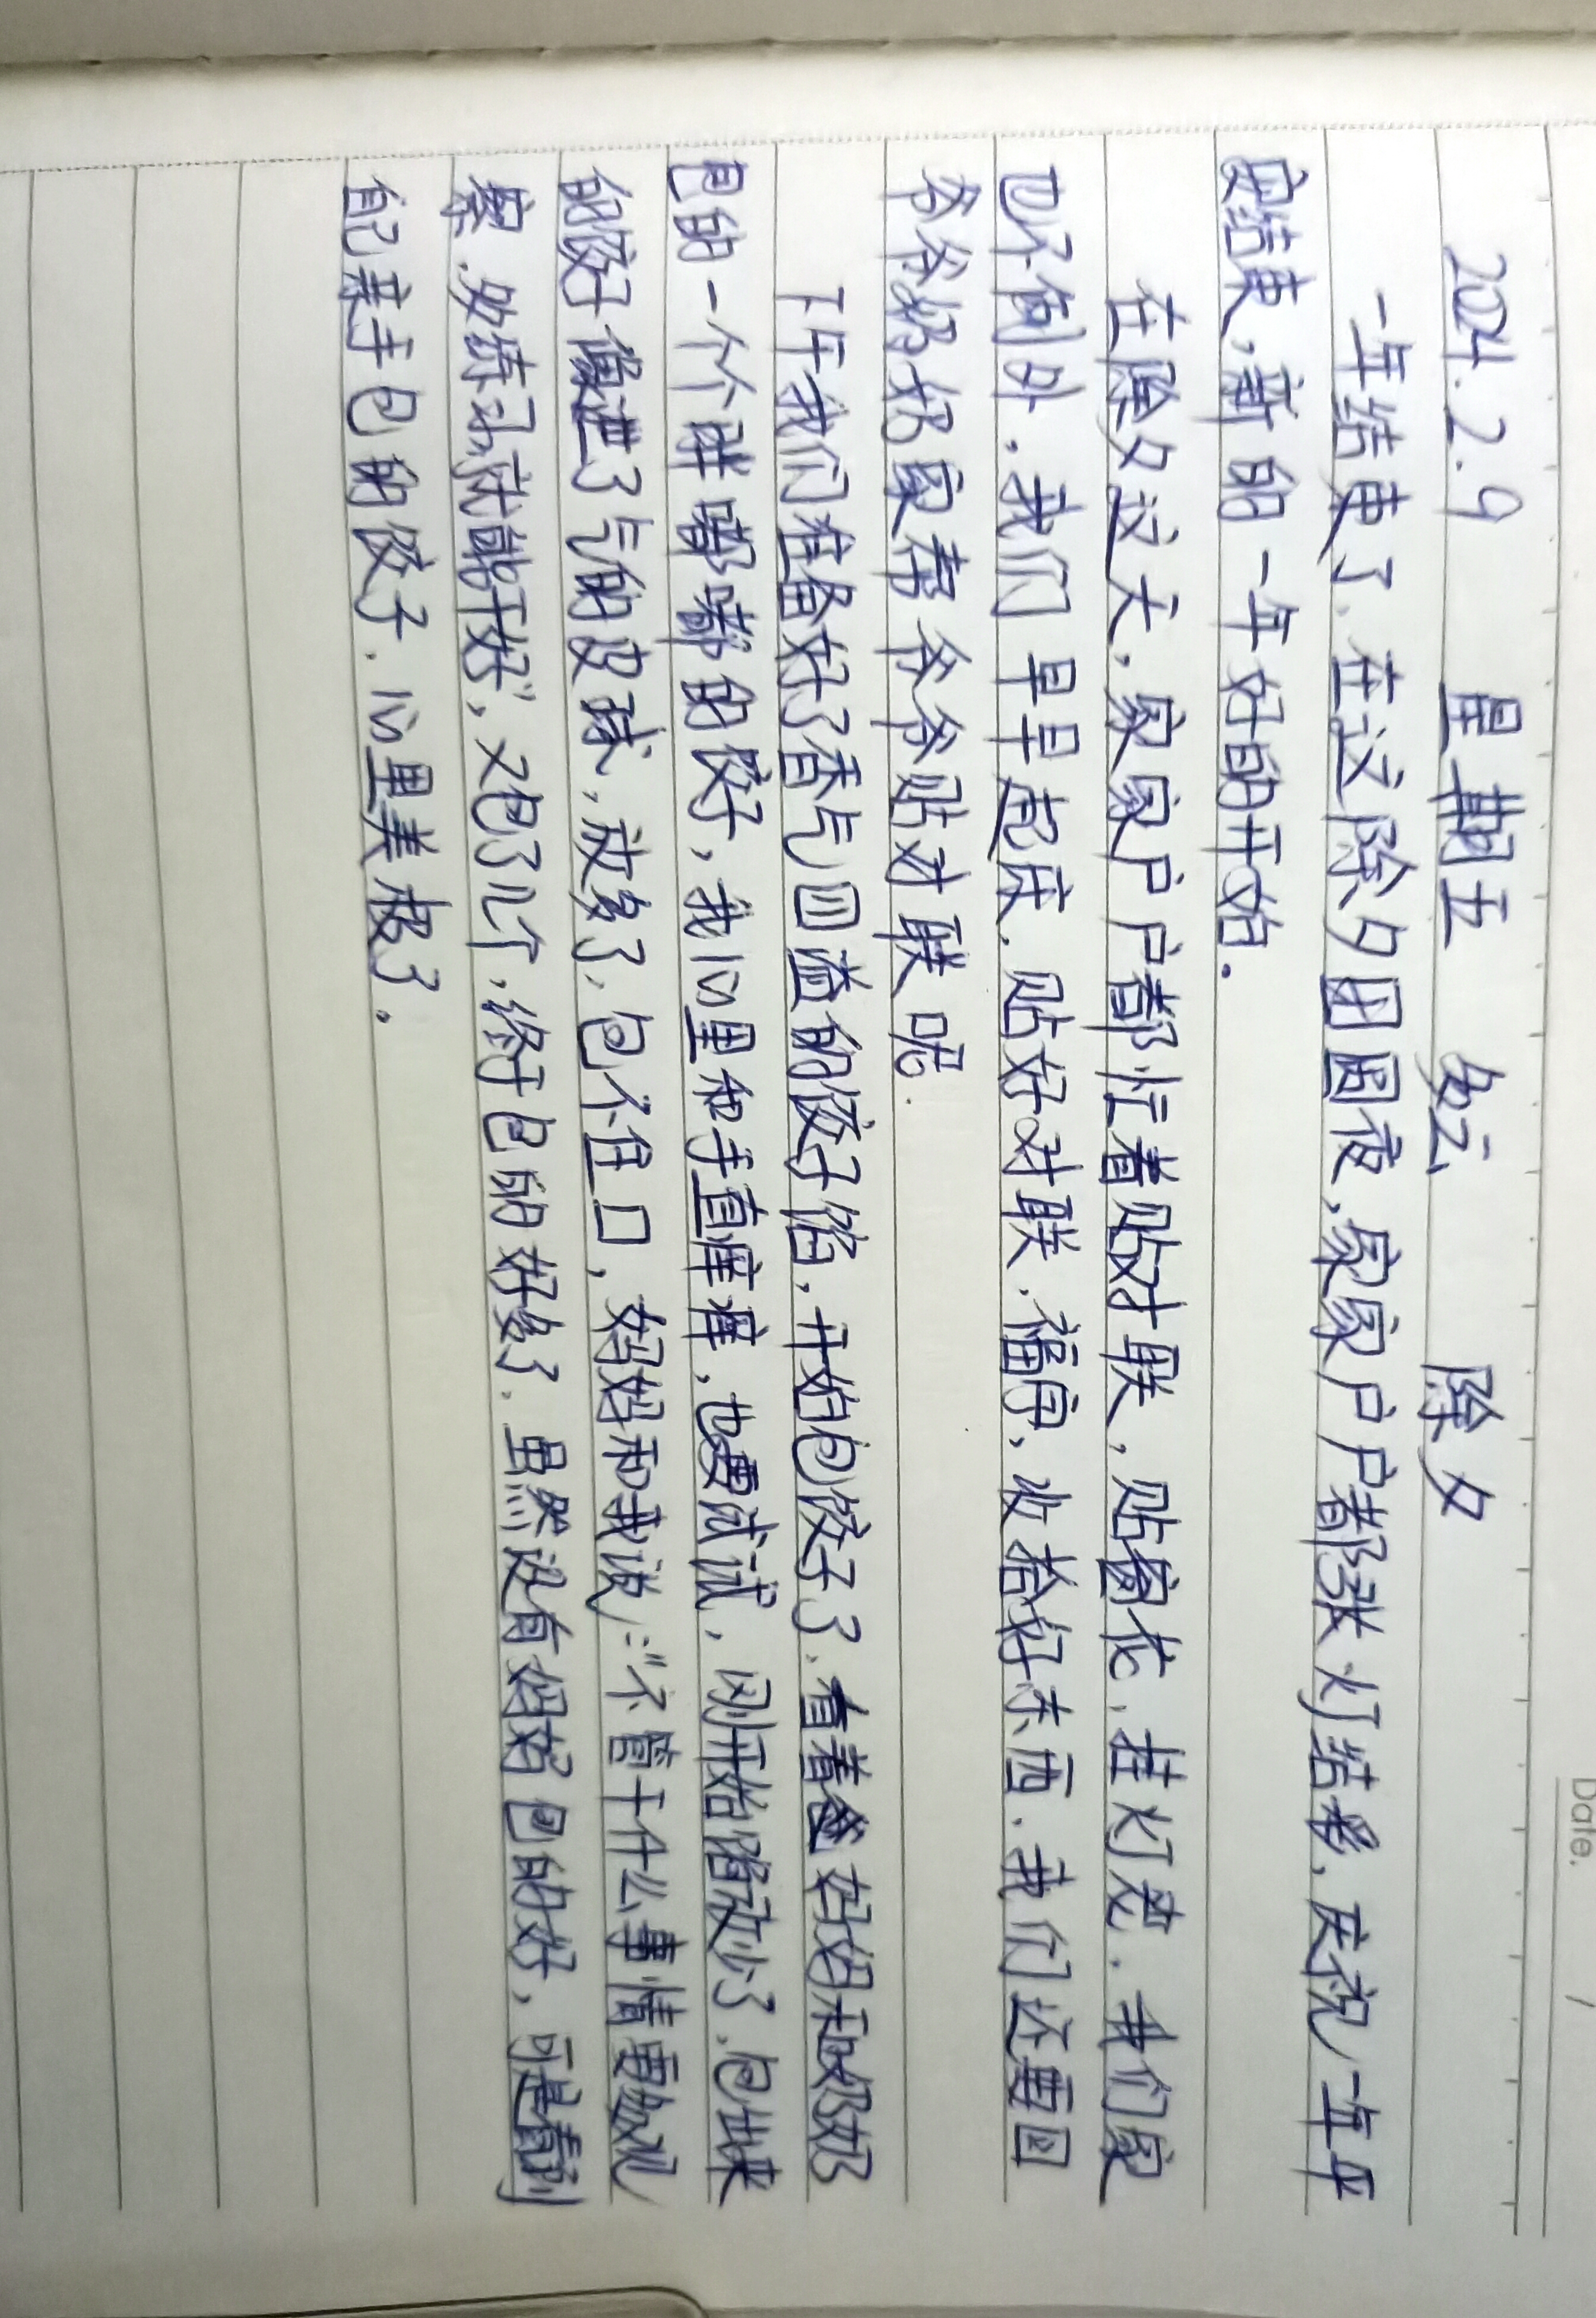 Date.      /
2024.2.9   星期五   多云   除夕
一年结束了，在这除夕团圆夜，家家户户都张灯结彩，庆祝一年平
安结束，新的一年好的开始。
在除夕这天，家家户户都忙着贴对联，贴窗花，挂灯笼．我们家
也不例外．我们早早起床．贴好对联，福字，收拾好东西．我们还要回
爷爷奶奶家帮爷爷贴对联呢．
下午我们准备好了香气四溢的饺子馅，开始包饺子了．看着爸妈妈和奶奶
包的一个个胖嘟嘟的饺子，我心里和手直痒痒，也要试试，刚开始馅放少了．包出来
的饺子像进了气的皮球，放多了，包不住口，妈妈和我说："不管干什么事情要多观
察．多练习就能干好"，又包了几个，终于包的好多了．虽然没有妈妈包的好，可是看到
自己亲手包的饺子．心里美极了．